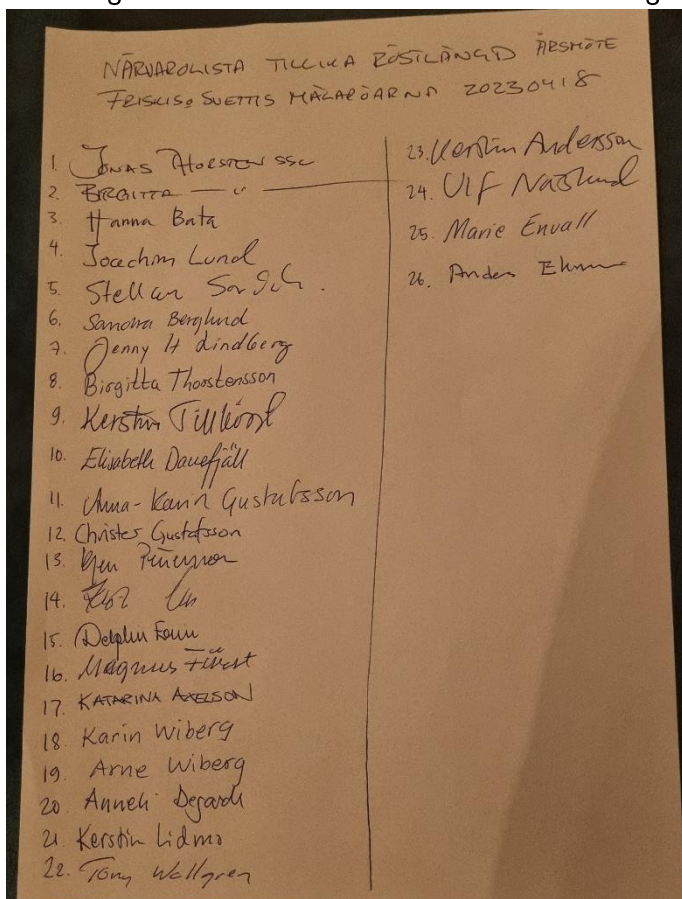 NÄRVAROLISTA TILLIKA RÖSTLÄNGD ÅRSMÖTE
FRISKIS & SVETTIS MÄLARÖARNA 20230418
1. JONAS
2. BIRGITTA — " —
3. Hanna Bata
4. Joachim Lund
5. Stellan
6. Sandra Berglund
7. Jenny H Lindberg
8. Birgitta Thorstensson
9. Kerstin
10. Elisabeth Danefjäll
11. Anna-Karin Gustafsson
12. Christer Gustafsson
13.
14.
15. Delphin
16. Magnus Fürst
17. KATARINA AXELSON
18. Karin Wiberg
19. Arne Wiberg
20. Anneli
21. Kerstin Lidmo
22. Tony Wallgren
23. Kerstin Andersson
24. Ulf Näslund
25. Marie Envall
26. Anders